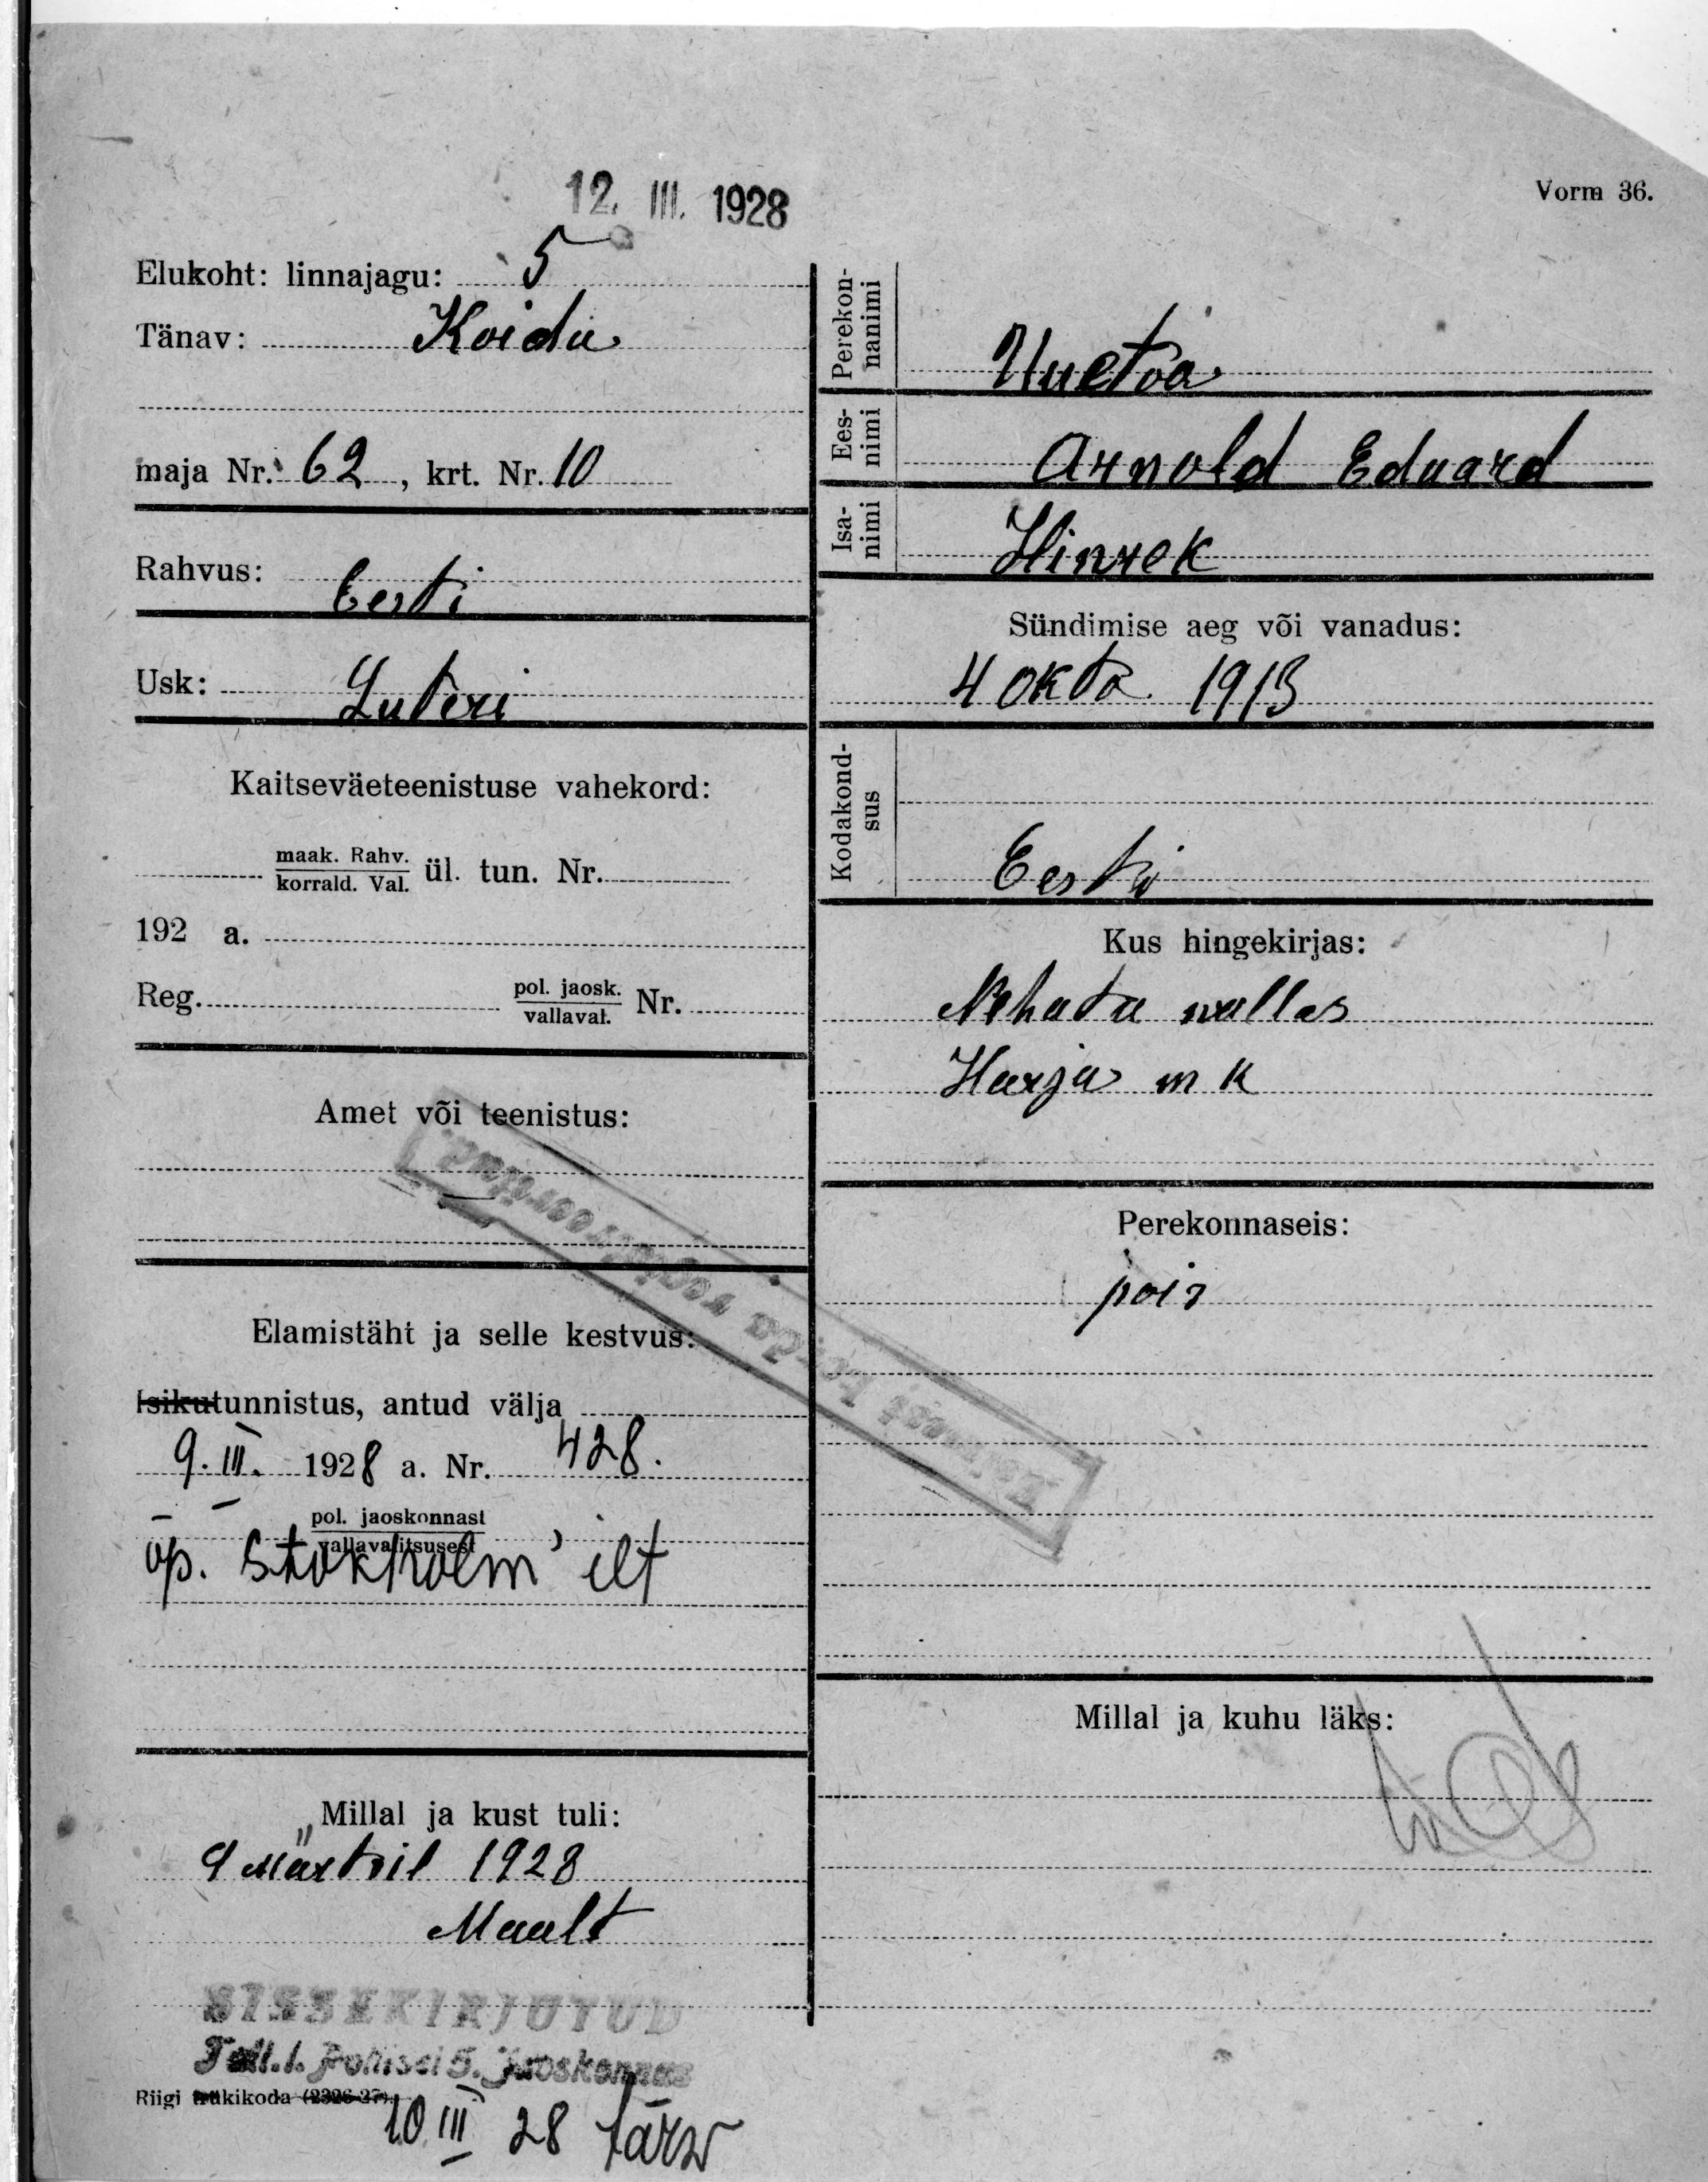 12. III. 1928
Vorm 36.
Elukoht: linnajagu: 5
Tänav: Koidu
maja Nr. 62, krt. Nr. 10
Rahvus: Eesti
Usk: Luteri
Kaitseväeteenistuse vahekord:
maak. Rahv.
korrald. Val. ül. tun. Nr.
192 a.
Reg. pol. jaosk.
vallaval. Nr.
Amet või teenistus:
Elamistäht ja selle kestvus:
Isikutunnistus, antud välja
9. III. 1928 a. Nr. 428.
pol. jaoskonnast
vallavalitsusest
õp. Stokholm' ilt
Millal ja kust tuli:
9 Märtsil 1928
Maalt
SISSEKIRJUTUD
Tall. l. Politsei 5. Jaoskonnas
Riigi trükikoda (2326-27).
10 III 28
Perekon-
nanimi
Uuetoa
Ees-
nimi
Arnold Eduard
Isa-
nimi
Hinrek
Sündimise aeg või vanadus:
4 okto 1913
Kodakond-
sus
Eesti
Kus hingekirjas:
Nehatu wallas
Harju m k
Perekonnaseis:
pois
Millal ja kuhu läks: